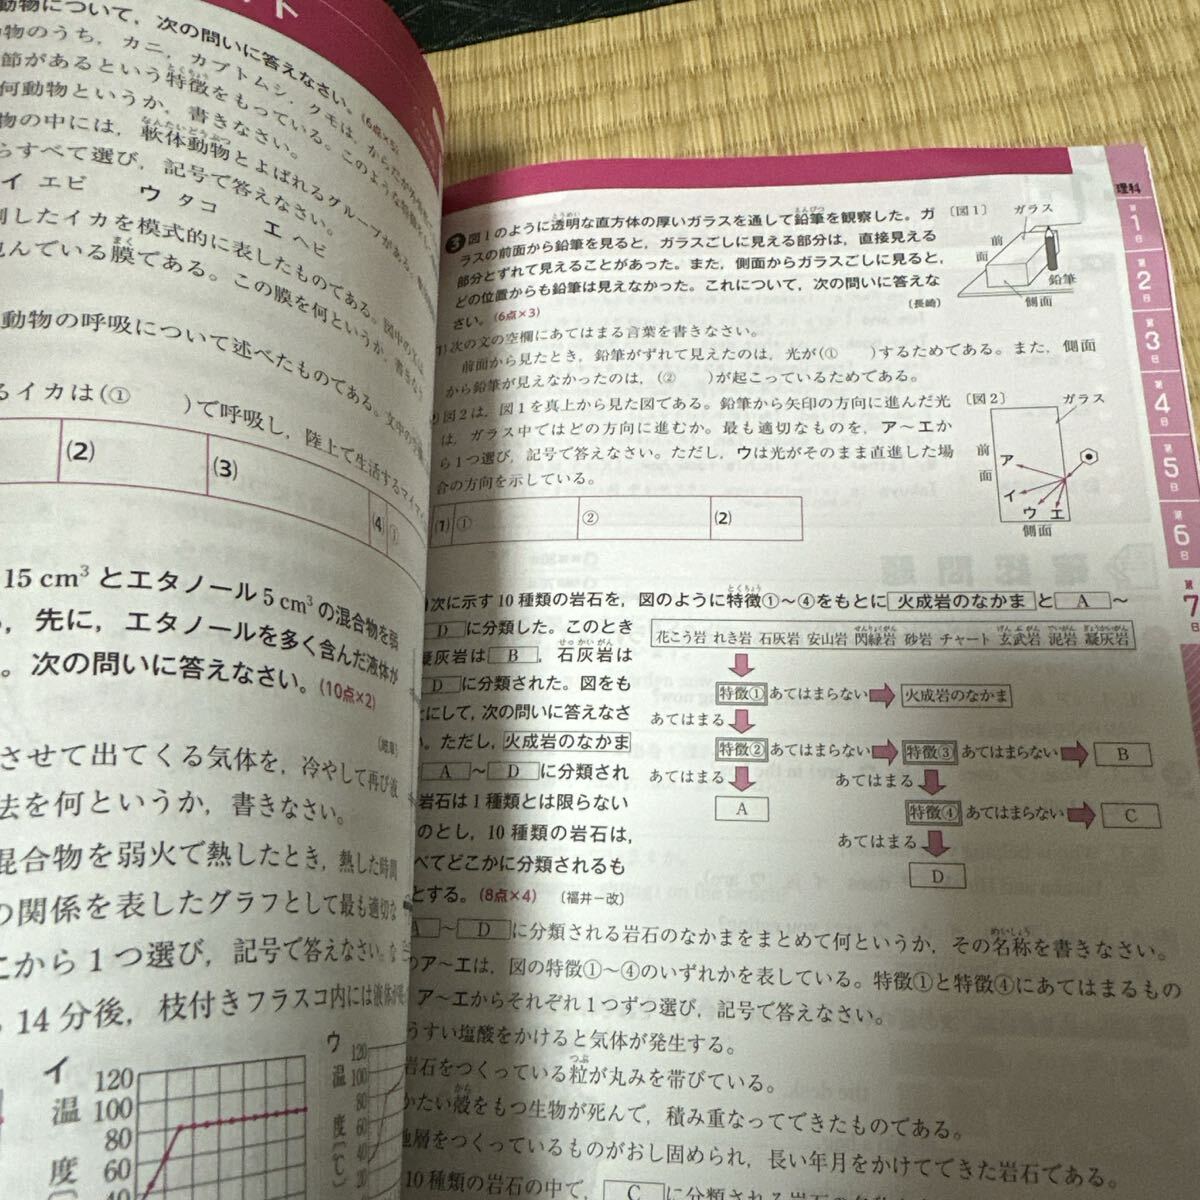 ット
動物について，次の問いに答えなさい。(6点×5)
物のうち，カニ，カブトムシ，クモは，からだが外骨格
節があるという特徴をもっている。このような特徴
何動物というか，書きなさい。
物の中には，軟体動物とよばれるグループがある。
らすべて選び，記号で答えなさい。
イ エビ ウ タコ エ ヘビ
したイカを模式的に表したものである。図中の
んでいる膜である。この膜を何というか，書きなさ
動物の呼吸について述べたものである。文中の
るイカは(① )で呼吸し，陸上で生活するマイマイ
(2) (3) (4) ①
15 cm³ とエタノール 5 cm³ の混合物を弱
，先に，エタノールを多く含んだ液体が
。次の問いに答えなさい。(10点×2)
〔岐阜〕
させて出てくる気体を，冷やして再び液
法を何というか，書きなさい。
混合物を弱火で熱したとき，熱した時間
の関係を表したグラフとして最も適切な
から1つ選び，記号で答えなさい。な
14分後，枝付きフラスコ内には液体が
イ 温度(
120
100
80
60
40
ウ 温度(℃)
120
100
80
60
40
20
理科
第1日
第2日
第3日
第4日
第5日
第6日
第7日
3 図1のように透明な直方体の厚いガラスを通して鉛筆を観察した。ガ
ラスの前面から鉛筆を見ると，ガラスごしに見える部分は，直接見える
部分とずれて見えることがあった。また，側面からガラスごしに見ると，
どの位置からも鉛筆は見えなかった。これについて，次の問いに答えな
さい。(6点×3) 〔長崎〕
〔図1〕 ガラス
前面
鉛筆
側面
1)次の文の空欄にあてはまる言葉を書きなさい。
前面から見たとき，鉛筆がずれて見えたのは，光が(① )するためである。また，側面
から鉛筆が見えなかったのは，(② )が起こっているためである。
)図2は，図1を真上から見た図である。鉛筆から矢印の方向に進んだ光
は，ガラス中ではどの方向に進むか。最も適切なものを，ア～エか
ら1つ選び，記号で答えなさい。ただし，ウは光がそのまま直進した場
合の方向を示している。
〔図2〕 ガラス
前面
ア
イ
ウ
エ
側面
(1) ① ② (2)
次に示す10種類の岩石を，図のように特徴①～④をもとに 火成岩のなかま と A ～
D に分類した。このとき
凝灰岩は B ，石灰岩は
D に分類された。図をも
とにして，次の問いに答えなさ
い。ただし，火成岩のなかま
A ～ D に分類され
岩石は1種類とは限らない
のとし，10種類の岩石は，
べてどこかに分類されるも
とする。(8点×4) 〔福井－改〕
花こう岩 れき岩 石灰岩 安山岩 閃緑岩 砂岩 チャート 玄武岩 泥岩 凝灰岩
特徴① あてはまらない 火成岩のなかま
あてはまる
特徴② あてはまらない 特徴③ あてはまらない B
あてはまる あてはまる
A 特徴④ あてはまらない C
あてはまる
D
A ～ D に分類される岩石のなかまをまとめて何というか，その名称を書きなさい。
のア～エは，図の特徴①～④のいずれかを表している。特徴①と特徴④にあてはまるもの
ア～エからそれぞれ1つずつ選び，記号で答えなさい。
うすい塩酸をかけると気体が発生する。
岩石をつくっている粒が丸みを帯びている。
かたい殻をもつ生物が死んで，積み重なってできたものである。
地層をつくっているものがおし固められ，長い年月をかけてできた岩石である。
10種類の岩石の中で，C に分類される岩石の